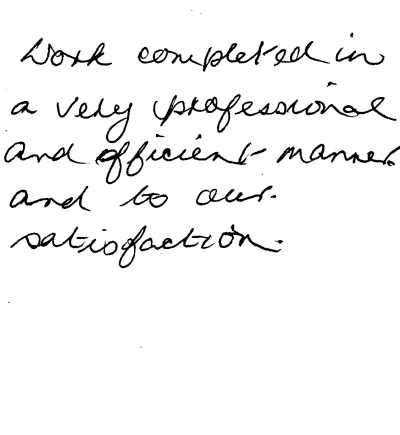 Work completed in
a very professional
and efficient manner
and to our
satisfaction.